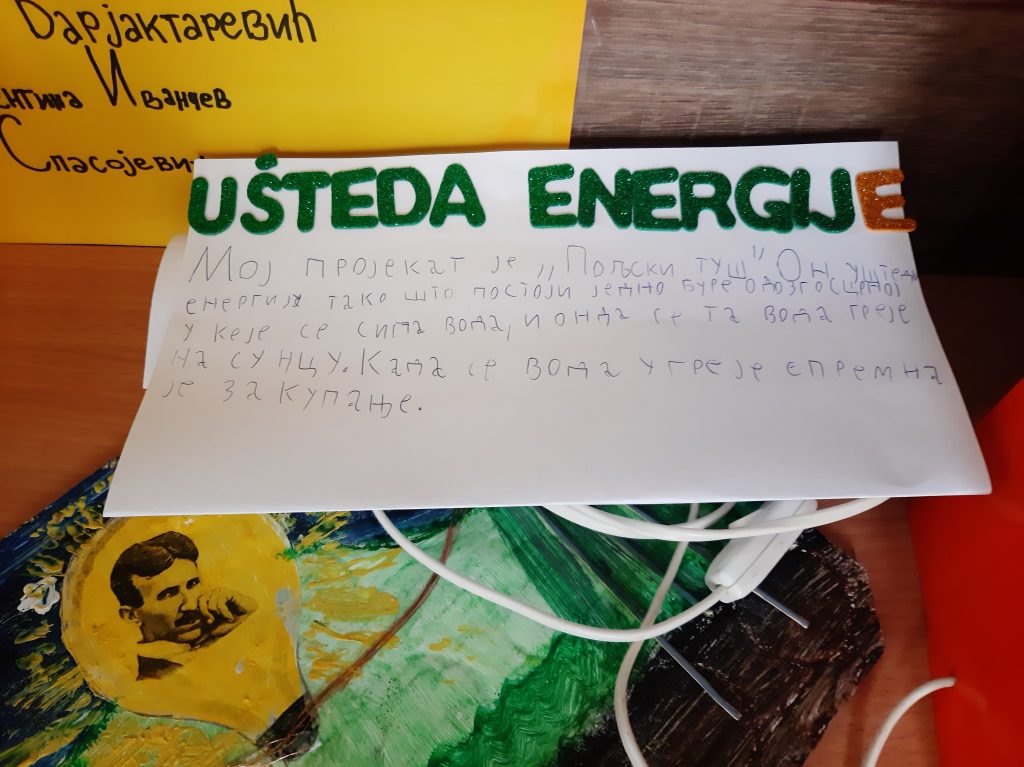 Дарјактаревић
Иванчев
Спасојевић
UŠTEDA ENERGIJE
Мој пројекат је ,,Пољски туш" Он уштеди
енергију тако што постоји једно буре одозго(црно)
у које се сипа вода, и онда се та вода греје
на сунцу. Када се вода угреје спремна
је за купање.